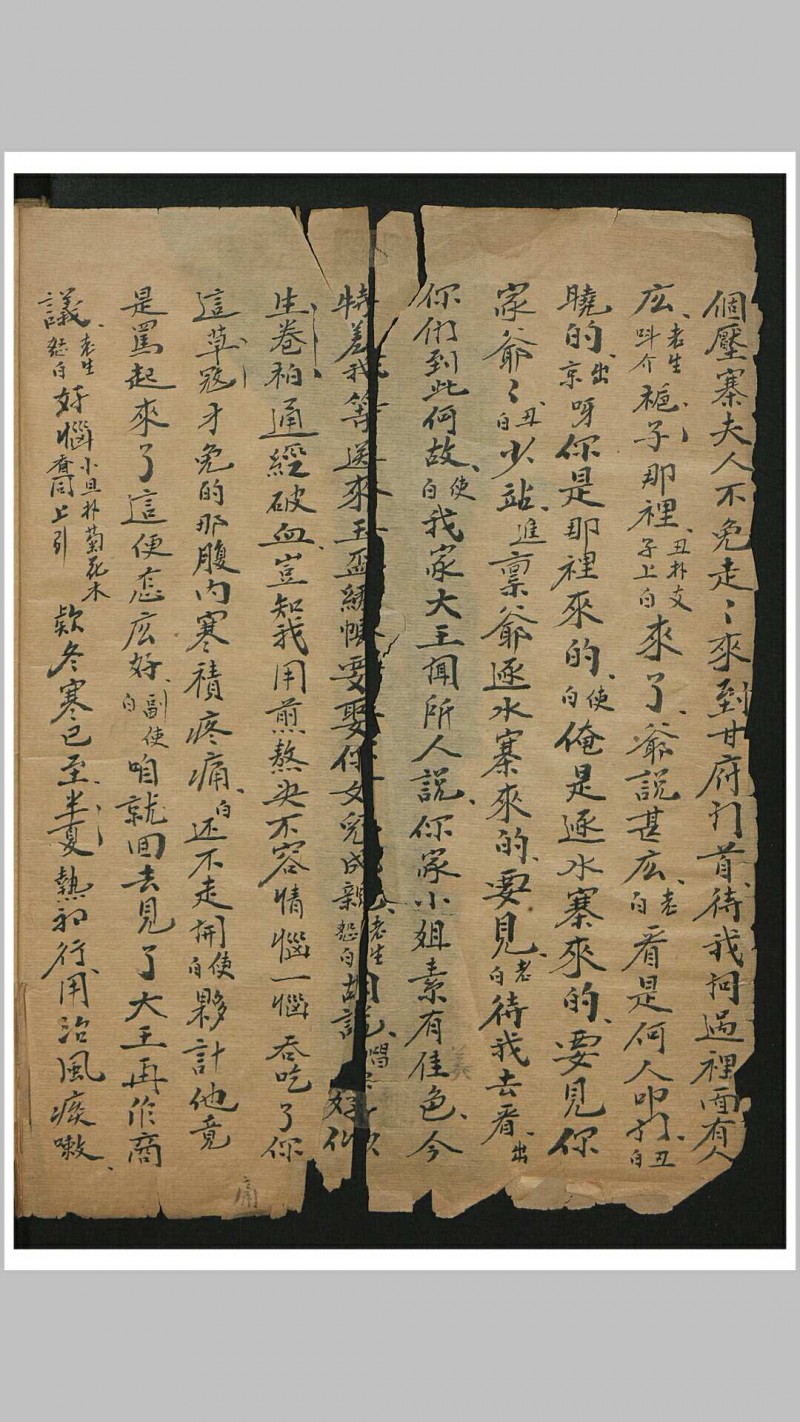 個壓寨夫人不免走〻來到甘府門首待我問過裡面有人
広老生呌介梔子那裡丑扑支子上白來了爺說甚広老白看是何人叩門丑白
曉的出京呀你是那裡來的使白俺是逐水寨來的要見你
家爺〻丑白少站進禀爺逐水寨來的要見老白待我去看出
你們到此何故使白我家大王聞所人說你家小姐素有佳色今
特差我等送來玉盃綉帳要娶你女兒成親老生怒白胡說唱 好似
生卷柏通經破血豈知我用煎熬决不容情惱一惱吞吃了你
這草寇才免的那腹内寒積疼痛白还不走開使白夥計他竟
是罵起來了這便怎広好副使白咱就回去見了大王再作商
議老生怒白好惱小旦扑菊花木香同上引 欵冬寒已至半夏熱初行用治風痰嗽
痛